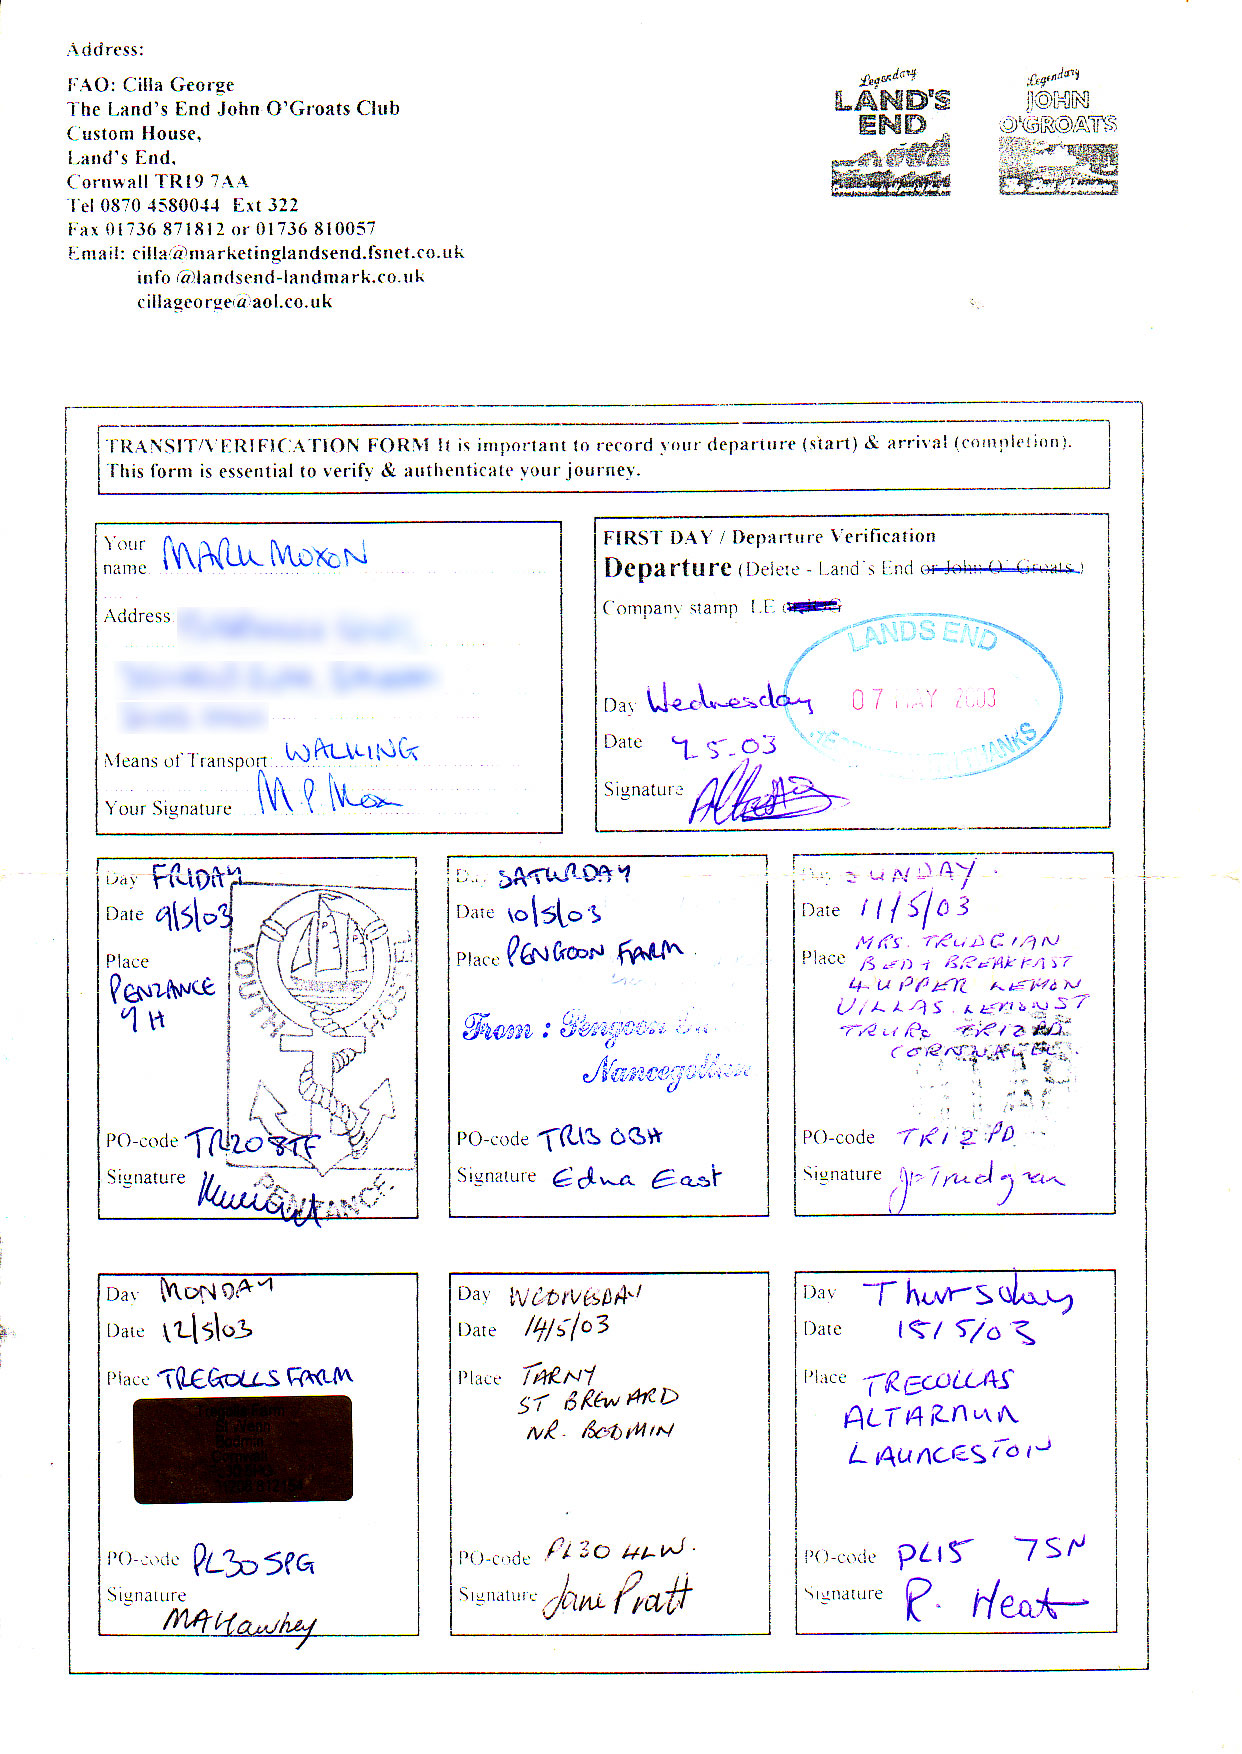 Address:
FAO: Cilla George
The Land's End John O'Groats Club
Custom House,
Land's End,
Cornwall TR19 7AA
Tel 0870 4580044 Ext 322
Fax 01736 871812 or 01736 810057
Email: cilla@marketinglandsend.fsnet.co.uk
info@landsend-landmark.co.uk
cillageorge@aol.co.uk
Legendary
LAND'S
END
Legendary
JOHN
O'GROATS
TRANSIT/VERIFICATION FORM It is important to record your departure (start) & arrival (completion).
This form is essential to verify & authenticate your journey.
Your name MARK MOXON
Address
Means of Transport WALKING
Your Signature M P Mox
FIRST DAY / Departure Verification
Departure (Delete - Land's End or John O' Groats)
Company stamp LE
LANDS END
07 MAY 2003
THANKS
Day Wednesday
Date 7.5.03
Signature
Day FRIDAY
Date 9/5/03
Place
PENZANCE
YH
YOUTH HOSTEL
PENZANCE
PO-code TR20 8TF
Signature
Day SATURDAY
Date 10/5/03
Place PENGOON FARM
From : Pengoon
PO-code TR13 0BH
Signature Edna East
Day SUNDAY
Date 11/5/03
Place MRS. TRUDGIAN
BED & BREAKFAST
4 UPPER LEMON
VILLAS LEMON ST
TRURO TR12PD
CORNWALL
PO-code TR12PD
Signature Trudgian
Day MONDAY
Date 12/5/03
Place TREGOLLS FARM
PO-code PL30 5PG
Signature
MAHawkey
Day WEDNESDAY
Date 14/5/03
Place TARNY
ST BREWARD
NR. BODMIN
PO-code PL30 4LW.
Signature Jane Pratt
Day Thursday
Date 15/5/03
Place TRECOLLAS
ALTARNUN
LAUNCESTON
PO-code PL15 7SN
Signature R. Heat